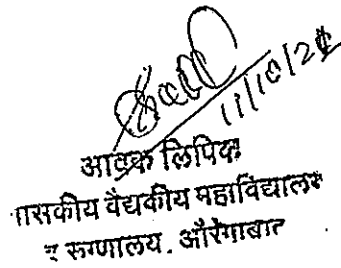 11/10/24
आवक लिपिक
ासकीय वैद्यकीय महाविद्यालय
व रुग्णालय. औरंगाबाद